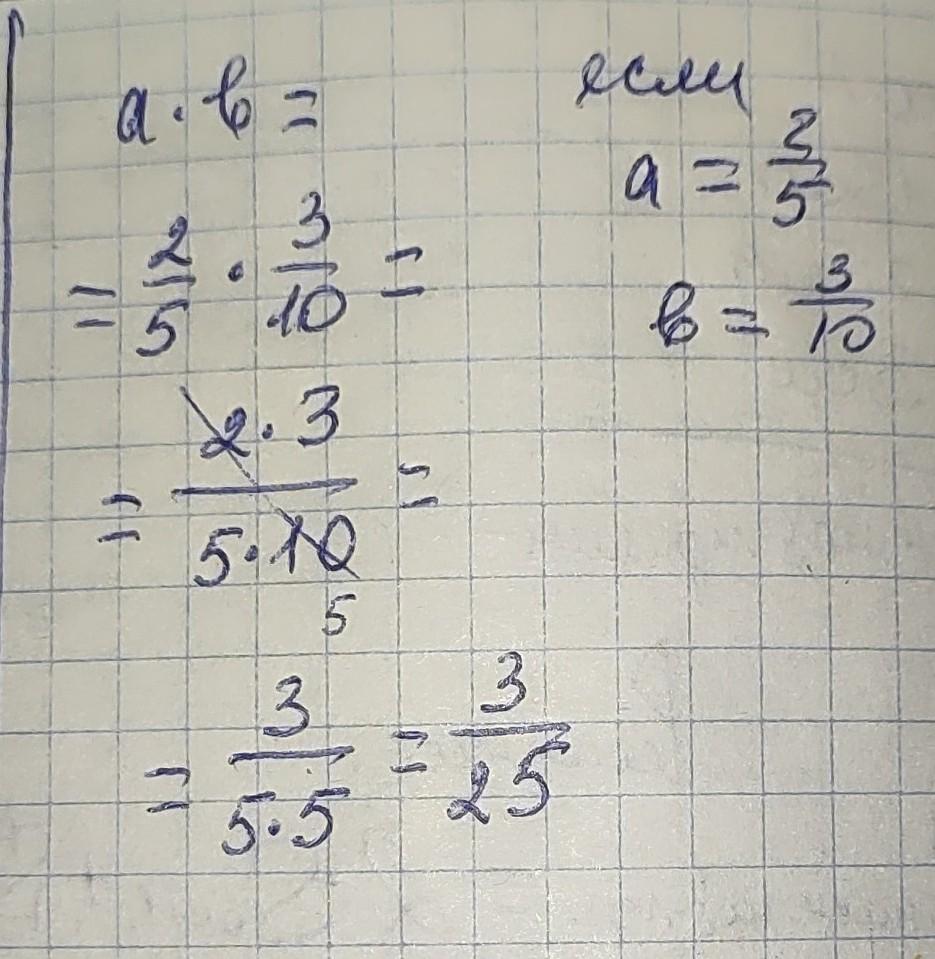 a · b = если
a = 2/5
= 2/5 · 3/10 =
b = 3/10
= 2 · 3 / 5 · 10 =
5
= 3 / 5 · 5 = 3/25